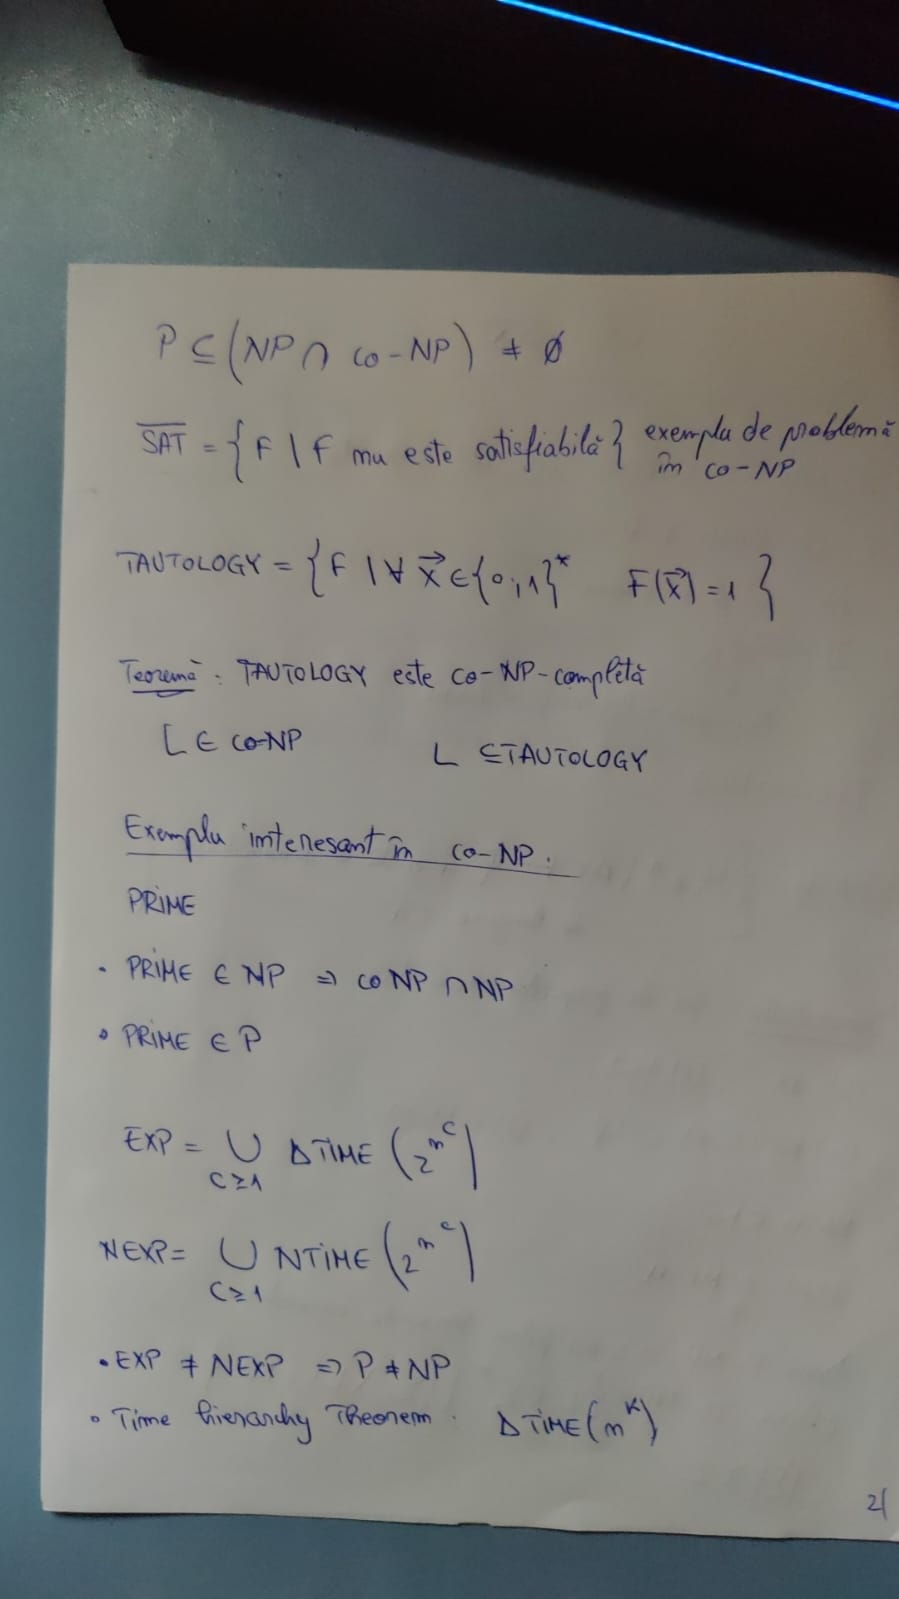 P ⊆ (NP ∩ co-NP) ≠ ∅
S̅A̅T̅ = {F | F nu este satisfiabilă} exemplu de problemă
în co-NP
TAUTOLOGY = {F | ∀ x⃗ ∈ {0,1}* F(x⃗) = 1}
Teoremă: TAUTOLOGY este co-NP-completă
L ∈ co-NP L ≤ TAUTOLOGY
Exemplu interesant în co-NP.
PRIME
• PRIME ∈ NP ⇒ coNP ∩ NP
• PRIME ∈ P
EXP = ∪ DTIME (2^n^c)
c≥1
NEXP = ∪ NTIME (2^n^c)
c≥1
• EXP ≠ NEXP ⇒ P ≠ NP
• Time hierarchy Theorem. DTIME(n^k)
21